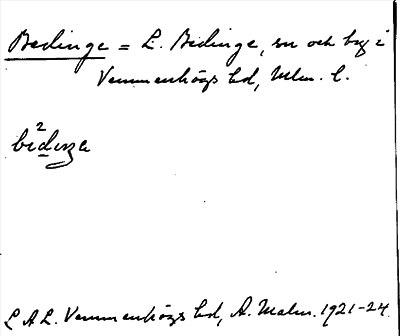 Bedinge = L. Bedinge, sn och by i
Vemmenhögs hd, Mlm. l.
be²dinge
L A L. Vemmenhögs hd, A. Malm. 1921-24.